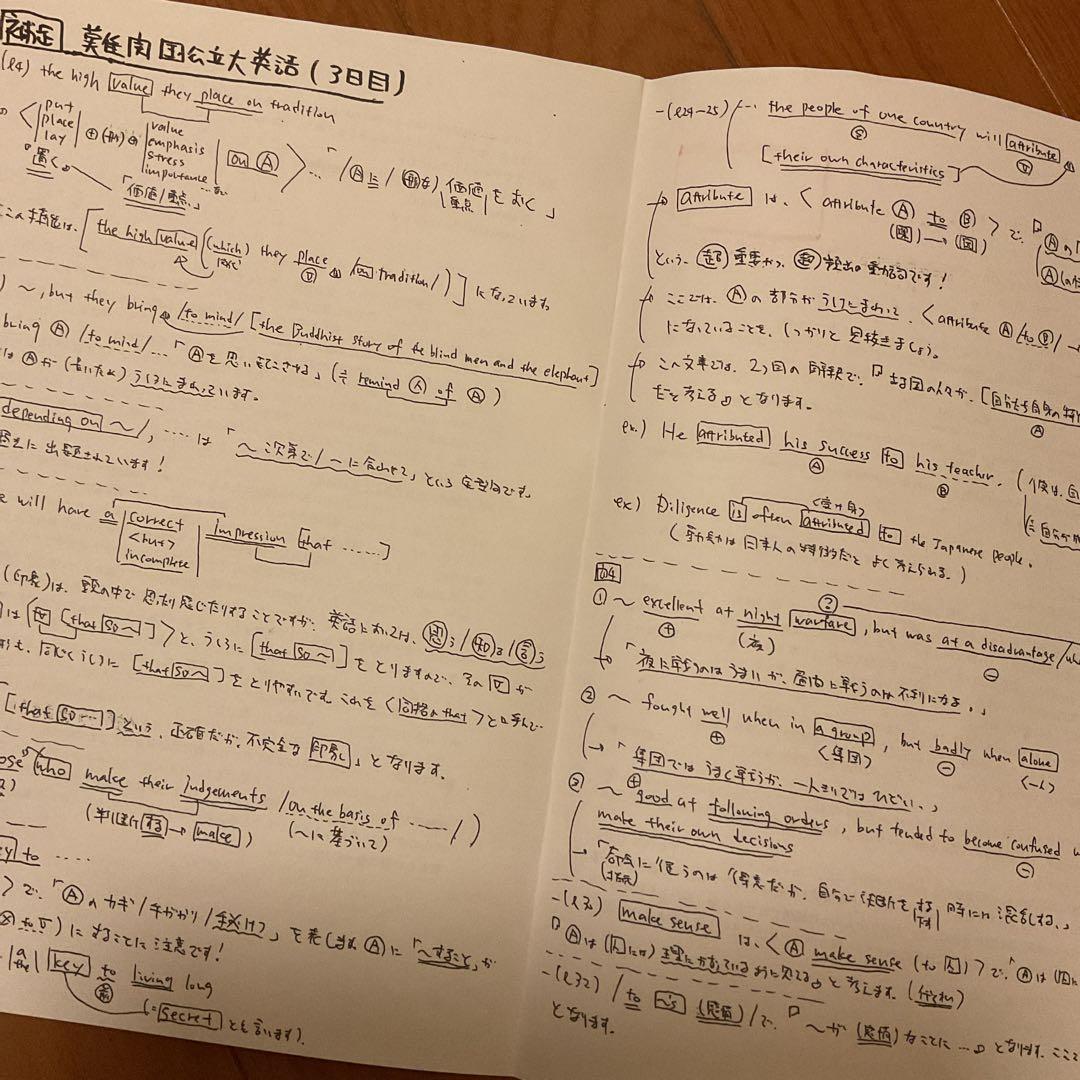 補足 難関国公立大英語(3日目)
(l4) the high value they place on tradition
put
place
lay
「置く」
value
emphasis
stress
importance …など
「価値/重点」
on Ⓐ … 「/Ⓐに/ 価値を おく」
重点
この 構造は、[the high value (which) they place /on tradition/] になっています。
~, but they bring /to mind/ [the Buddhist story of the blind men and the elephant]
bring Ⓐ /to mind/… 「Ⓐを思い起こさせる」 (≒ remind 人 of Ⓐ)
は Ⓐが (長いため) うしろにまわっています。
depending on ~/, …… は 「~次第で/~に合わせて」という 定型句です。
に出題されています!
will have a correct <but> incomplete impression [that ……]
(印象)は、頭の中で 思ったり感じたりすることですが、英語においては、思う/知る/言う
は <Ⓥ [that SV~]> と、うしろに [that SV~] をとりますので、その Ⓥ が
も、同じくうしろに [that SV~] をとりやすいです。これを <同格のthat> と呼んで
[that SV …] という、正確だが、不完全な 印象」となります。
who make their judgements /on the basis of ……/)
(判断する → make) (~に基づいて)
key to ……
> で、「Ⓐのカギ/手がかり/秘けつ」を表します Ⓐに「~すること」が
to Ⓥ) にすることに注意です!
a
the
key to living long
前
(= secret とも言います).
-(l24-25)/… the people of one country will attribute
Ⓢ Ⓥ
[their own characteristics]
attribute は、< attribute Ⓐ to Ⓑ > で、「Ⓐの
という、超 重要かつ、超 頻出の動詞です!
ここでは、Ⓐの部分がうしろにまわって、<attribute Ⓐ /to Ⓑ/ →
になっていることを、しっかりと 見抜きましょう。
この文章では、2つ目の解釈で、「ある国の人々が、[自分たち自身の特
だと考える」となります。
ex.) He attributed his success to his teacher.
Ⓐ Ⓑ
<受け身>
ex) Diligence is often attributed to the Japanese people.
(勤勉は日本人の特徴だと よく考えられる.)
問4
① ~ excellent at night warfare, but was at a disadvantage /wh
⊕ (夜) ? ⊖
→ 「夜に戦うのは うまいが、昼間に戦うのは不利になる。」
② ~ fought well when in a group, but badly when alone
⊕ <集団> ⊖ <一人>
→ 「集団では うまく戦うが、一人きりではひどい。」
③ ~ good at following orders, but tended to become confused
⊕ ⊖
make their own decisions
→ 「命令に従うのは得意だが、自分で決断をする 時には 混乱する。」
-(l31) make sense は、< Ⓐ make sense (to 人) > で、「Ⓐは (人に
「Ⓐは (人には) 理にかなっているように思える」と 考えます。
-(l32) / to 人's (感情) / で、「~が (感情) なことに …」となります。ここで
となります。